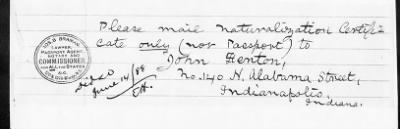 Please mail Naturalization Certifi-
cate only (not Passport) to
John Fenton,
No. 140 N. Alabama Street,
Indianapolis,
Indiana.
LAWYER,
PASSPORT AGENT,
NOTARY AND
COMMISSIONER
FOR ALL THE STATES
&C.
June 14/88